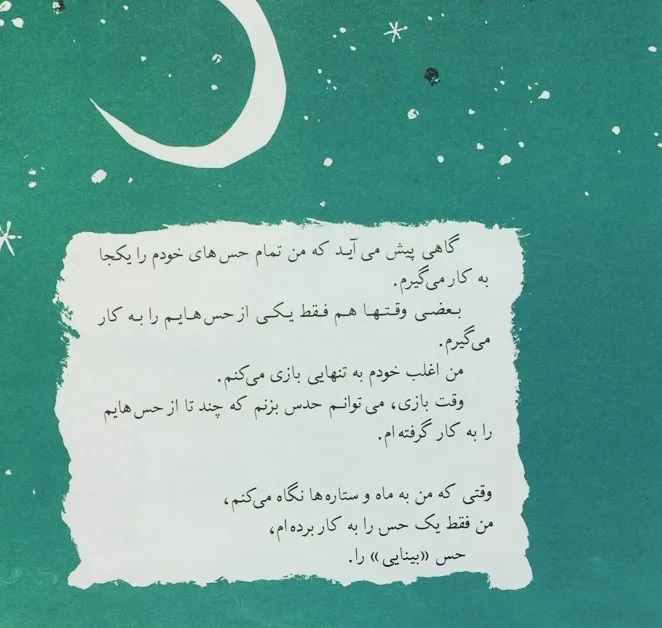 گاهی پیش می‌آید که من تمام حس‌های خودم را یکجا
به کار می‌گیرم.
بعضی وقتها هم فقط یکی از حس‌هایم را به کار
می‌گیرم.
من اغلب خودم به تنهایی بازی می‌کنم.
وقت بازی، می‌توانم حدس بزنم که چند تا از حس‌هایم
را به کار گرفته‌ام.
وقتی که من به ماه و ستاره‌ها نگاه می‌کنم،
من فقط یک حس را به کار برده‌ام،
حس «بینایی» را.